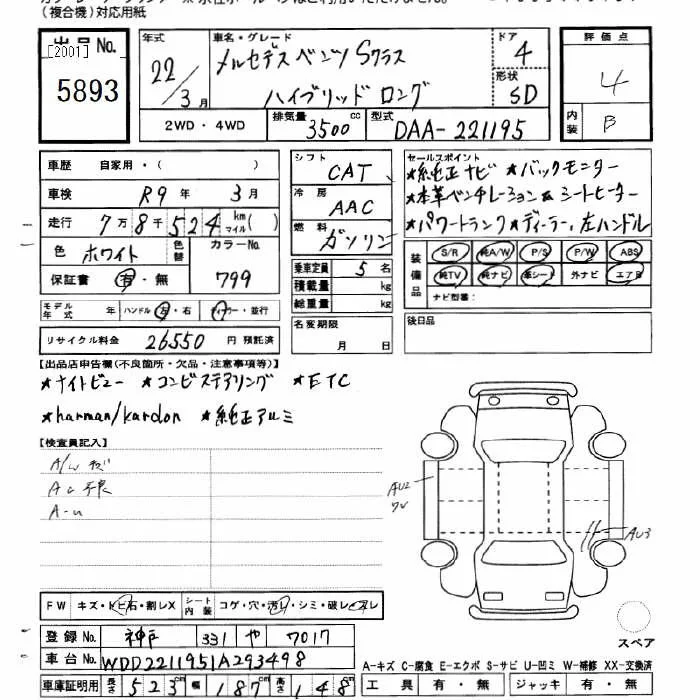 (複合機)対応用紙
出品No.
[2001]
5893
年式 22/3月
車名・グレード メルセデスベンツ Sクラス
ハイブリッド ロング
ドア 4
形状 SD
評価点 4
内装 B
2WD・4WD 排気量 3500cc 型式 DAA-221195
車歴 自家用・( )
車検 R9年 3月
走行 7万8千524 km マイル( )
色 ホワイト 色替 カラーNo. 799
保証書 有・無
シフト CAT
冷房 AAC
燃料 ガソリン
乗車定員 5名
積載量 kg
総重量 kg
セールスポイント
★純正ナビ ★バックモニター
★本革ベンチレーション & シートヒーター
★パワートランク★ディーラー、左ハンドル
装備品 S/R 純A/W P/S P/W ABS
純TV 純ナビ 革シート 外ナビ エアB
ナビ型番:
モデル年式 年 ハンドル 左・右 ディーラー・並行
名変期限 月 日
後日品
リサイクル料金 26550円 預託済
【出品店申告欄(不良箇所・欠品・注意事項等)】
★ナイトビュー ★コンビステアリング ★ETC
★harman/kardon ★純正アルミ
【検査員記入】
A/W キズ
AC 不良
A-U
AU2
AU3
FW キズ・トビ石・割レX シート内装 コゲ・穴・汚レ・シミ・破レ・スレ
スペア
登録No. 神戸 331 や 7017
車台No. WDD2211951A293498
A-キズ C-腐食 E-エクボ S-サビ U-凹ミ W-補修 XX-交換済
車庫証明用 長さ 523cm 幅 187cm 高さ 148cm
工具 有・無 ジャッキ 有・無